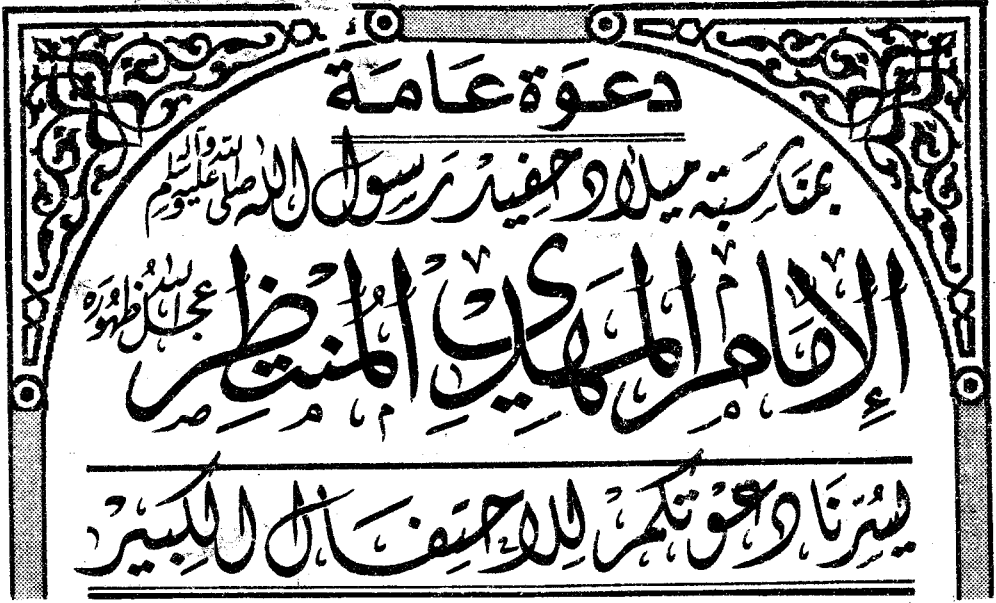 دعوة عامة
بمناسبة ميلاد حفيد رسول الله صلى الله عليه وآله وسلم
الإمام المهدي المنتظر عجل الله ظهوره
يسرنا دعوتكم للاحتفال الكبير